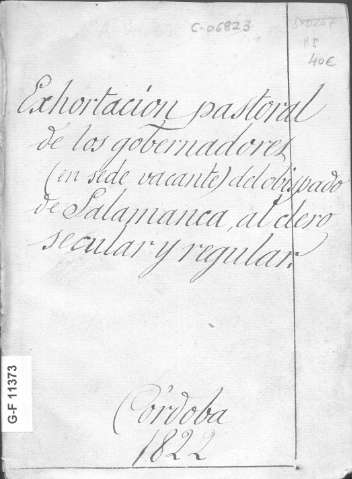 C-06823
40€
Exhortación pastoral
de los gobernadores
(en sede vacante) del obispado
de Salamanca, al clero
secular y regular.
G-F 11373
Córdoba
1822